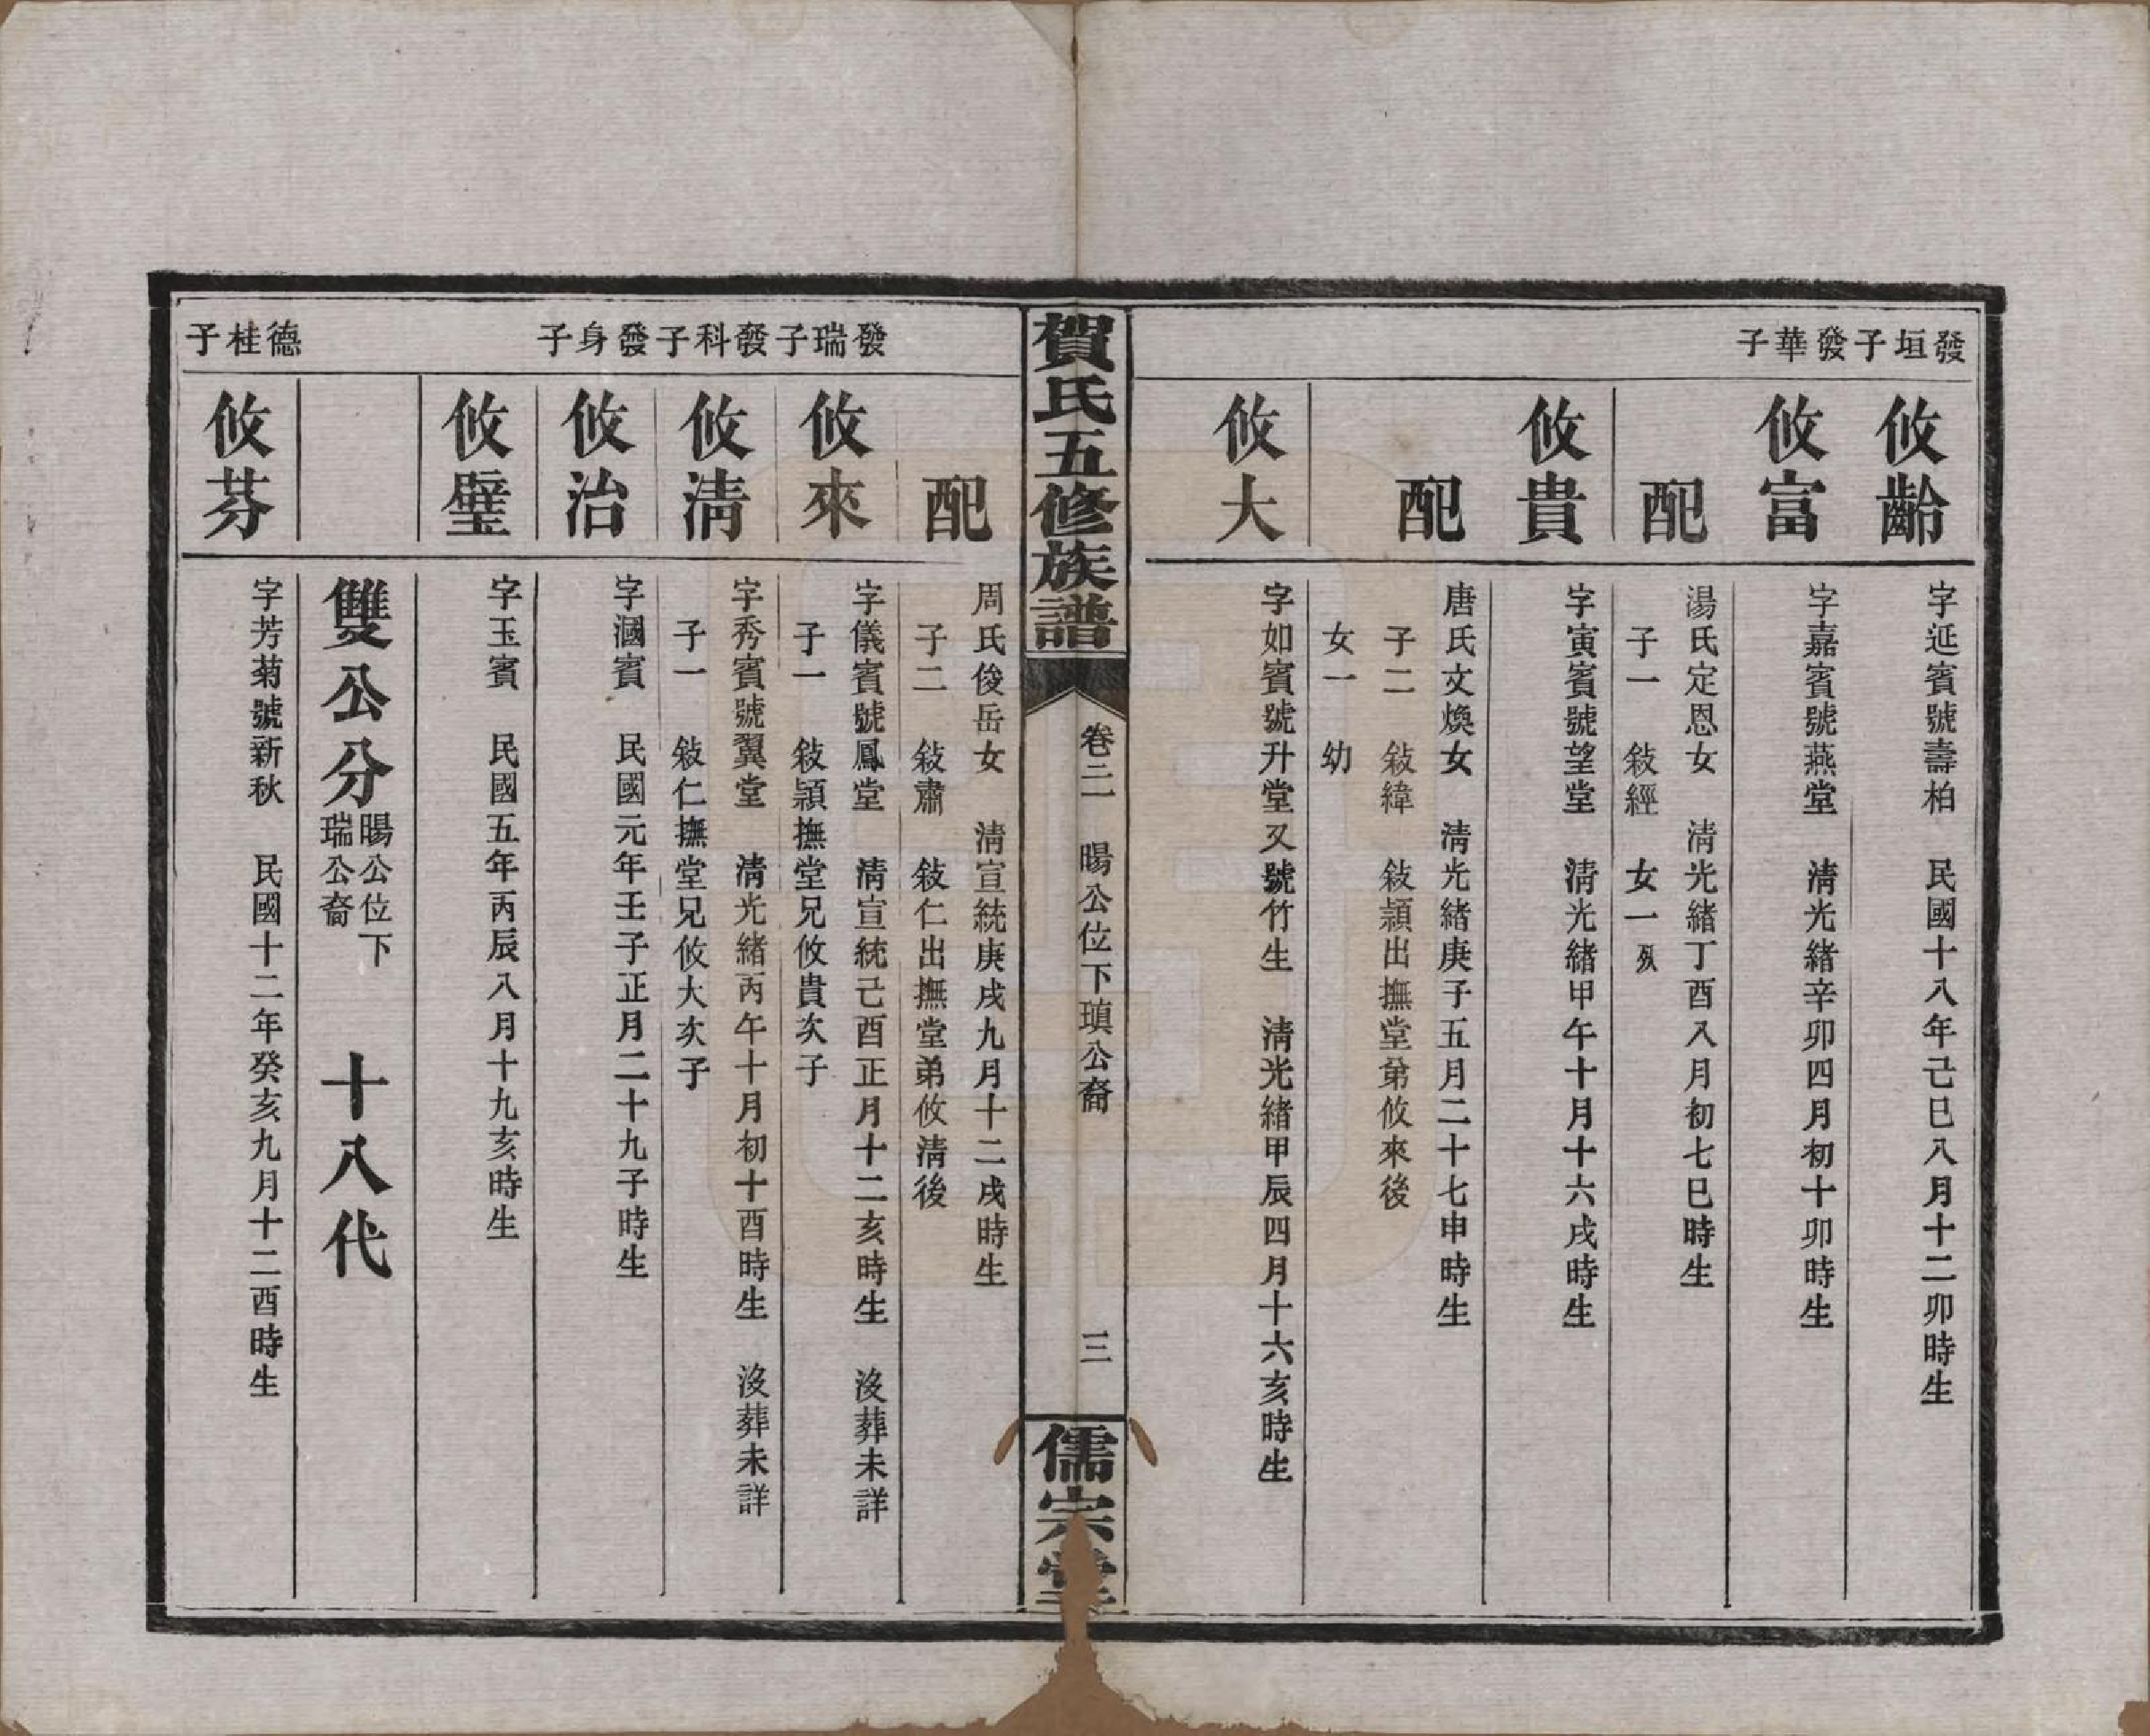 發垣子發華子
攸齡
字延賓號壽柏　民國十八年己巳八月十二卯時生
攸富
字嘉賓號燕堂　清光緒辛卯四月初十卯時生
配
湯氏定恩女　清光緒丁酉八月初七巳時生
子一　敍經　女一　殀
攸貴
字寅賓號望堂　清光緒甲午十月十六戌時生
配
唐氏文煥女　清光緒庚子五月二十七申時生
子二　敍緯　敍穎出撫堂弟攸來後
女一　幼
攸大
字如賓號升堂又號竹生　清光緒甲辰四月十六亥時生
賀氏五修族譜
卷二　暘公位下瑱公裔
三
儒宗堂
發瑞子發科子發身子
配
周氏俊岳女　清宣統庚戌九月十二戌時生
子二　敍肅　敍仁出撫堂弟攸清後
攸來
字儀賓號鳳堂　清宣統己酉正月十二亥時生　沒葬未詳
子一　敍穎撫堂兄攸貴次子
攸清
字秀賓號翼堂　清光緒丙午十月初十酉時生　沒葬未詳
子一　敍仁撫堂兄攸大次子
攸治
字國賓　民國元年壬子正月二十九子時生
攸璧
字玉賓　民國五年丙辰八月十九亥時生
雙公分
暘公位下
瑞公裔
十八代
德桂子
攸芬
字芳菊號新秋　民國十二年癸亥九月十二酉時生